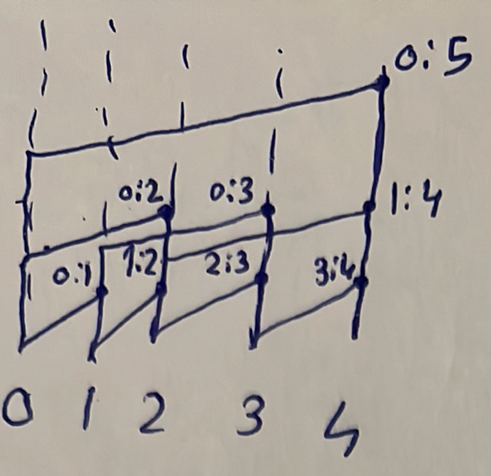 0:5
0:2 0:3 1:4
0:1 1:2 2:3 3:4
0 1 2 3 4